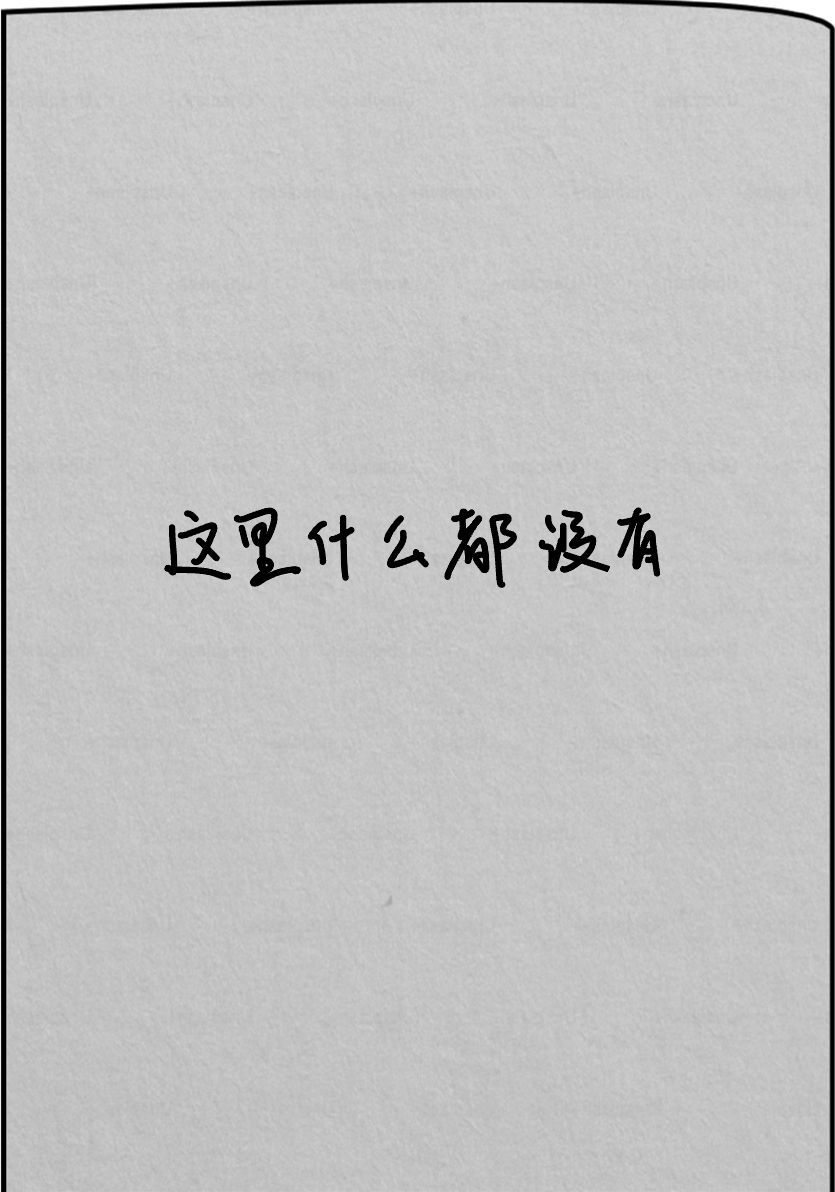 这里什么都没有